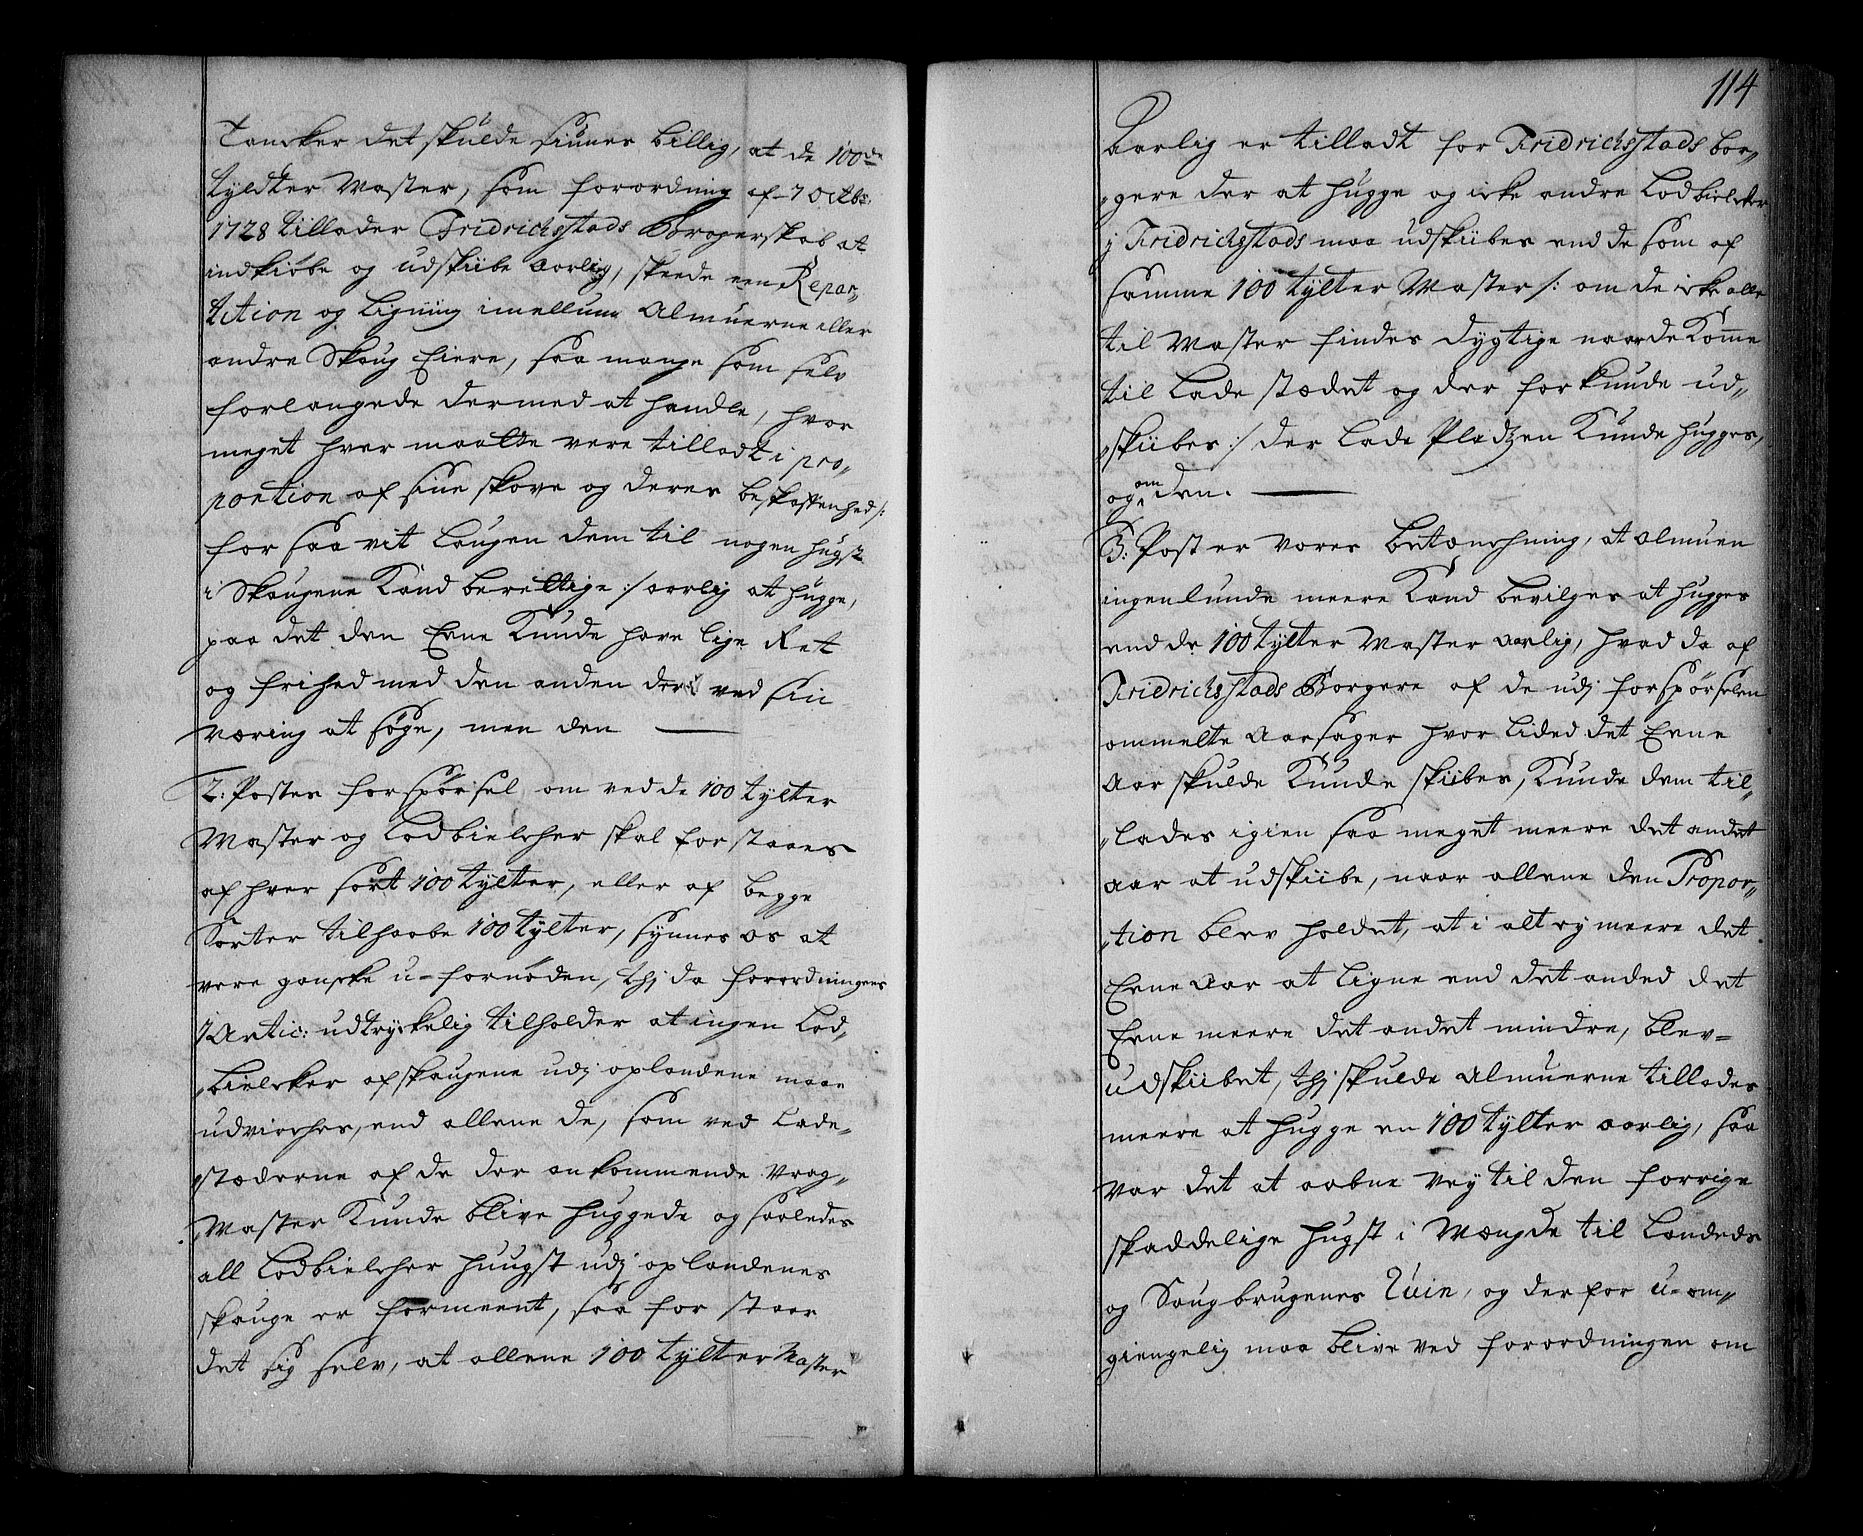 Tancker det skulde sÿnnes billig, at de 100de
tyldter Master, som forordning af 7 Octbr:
1728 tillader Fridrichsstads Borgerskab at
indkiøbe og udskibe aarlig, skeede een Repar„
tition og Ligning imellum Almuerne eller
andre Skoug Eiere, saa mange som selv
forlangede dermed at handle, hvor
meget hver maatte vere tilladt i pro„
portion af sine skove og deres beskaffenhed /:
for saa vit Laugen dem til nogen hugst
i Skougene Kand berettige :/ aarlig at hugge,
paa det den Eene Kunde have lige Ret
og frihed med den anden der ved sin
næring at søge, men den ———
2: Postes forspørsel om ved de 100 tylter
Master og Lodbielcher skal forstaaes
af hver sort 100 tylter, eller af begge
Sorter tilhaabe 100 tylter, synnes os at
vere ganske u-fornøden, thj da forordningens
7 Artic: udtryckelig tilholder at ingen Lod„
„bielcker af skougene udj oplandene maae
udvirches, end allene de, som ved Lade„
„stæderne af de der ankommende Vrag„
„Master Kunde blive huggede og saaledes
all Lodbielcher huugst udj oplandenes
skouge er formeent, saa forstaar
det sig selv, at allene 100 tylter Master
114
Aarlig er tilladt for Fridrichsstads bor„
„gere der at hugge og icke andre Lodbielcker
j Fridrichsstads maa udskibes end de som af
samme 100 tylter Master /: om de icke alle
til Master findes dygtige naar de Kom̅e
til Lade stædet og der for kunde ud„
„skibes :/ der Lade Pladzen Kunde hugges,
og om den. ———
3: Post er vores betænchning, at almuen
ingenlunde meere Kand bevilges at hugges
end de 100 tylter Master aarlig, hvad da af
Fridrichsstads Borgere af de udj forspørselen
ommelte Aarsager hvor lided det Eene
Aar skulde Kunde skibes, Kunde dem til„
„lades igien saa meget meere det andet
aar at udskibe, naar allene den Propor„
„tion blev holdet, at i alt ej meere det
Eene Aar at ligne end det anded det
Eene meere det andet mindre, blev-
udskibet, thj skulde Almuerne tillades
meere at hugge en 100 tylter aarlig, saa
var det at aabne Vey til den forrige
skaddelige hugst i Mængde til Landeds
og Saugbrugenes Ruin, og der for u-om„
giengelig maa blive ved forordningen om